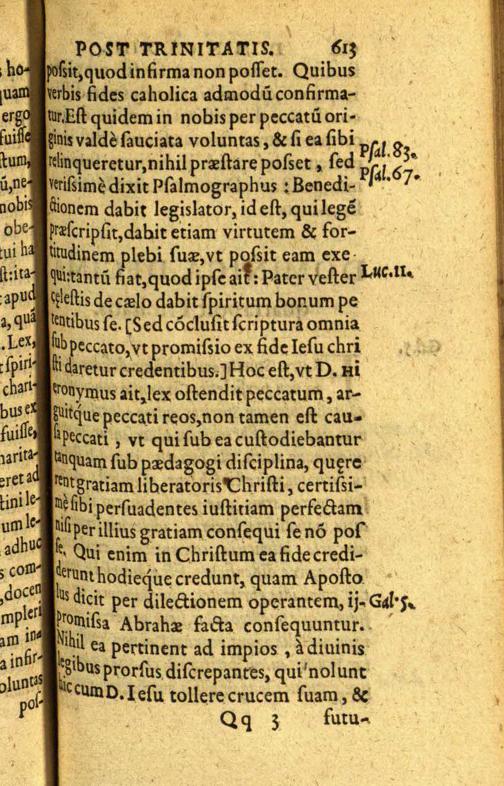 ho-
quam
ergo
fuiſſe
ctum,
ũ,ne-
nobis
obe-
tui ha
ſt:ita-
apud
a, quã
Lex,
ſpiri-
chari-
bus ex
fuiſſe,
harita-
eret ad
tini le-
um le-
adhuc
s com-
,docen
mpleri
am in-
a infir-
oluntas
poſ-
POST TRINITATIS. 613
poſsit,quod infirma non poſſet. Quibus
verbis fides catholica admodũ confirma-
tur.Eſt quidem in nobis per peccatũ ori-
ginis valdè ſauciata voluntas, & ſi ea ſibi
relinqueretur,nihil præſtare poſset, ſed
veriſsimè dixit Pſalmographus : Benedi-
ctionem dabit legislator, id eſt, qui legẽ
præſcripſit,dabit etiam virtutem & for-
titudinem plebi ſuæ,vt poſsit eam exe
qui:tantũ fiat,quod ipſe ait: Pater veſter
cęleſtis de cælo dabit ſpiritum bonum pe
tentibus ſe. [Sed cõcluſit ſcriptura omnia
ſub peccato, vt promiſsio ex fide Ieſu chri
ſti daretur credentibus.] Hoc eſt,vt D. HI
eronymus ait,lex oſtendit peccatum, ar-
guitq́ue peccati reos,non tamen eſt cau-
ſa peccati , vt qui ſub ea cuſtodiebantur
tanquam ſub pædagogi diſciplina, quęre
rent gratiam liberatoris Chriſti, certiſsi-
mè ſibi perſuadentes iuſtitiam perfectam
niſi per illius gratiam conſequi ſe nõ poſ
ſe. Qui enim in Chriſtum ea fide credi-
derunt hodieq́ue credunt, quam Apoſto
lus dicit per dilectionem operantem, ij-
promiſsa Abrahæ facta conſequuntur.
Nihil ea pertinent ad impios , à diuinis
legibus prorſus diſcrepantes, qui nolunt
hic cum D. Ieſu tollere crucem ſuam, &
Qq 3 futu-
Pſal. 83.
Pſal. 67.
Luc. 11.
Gal. 5.